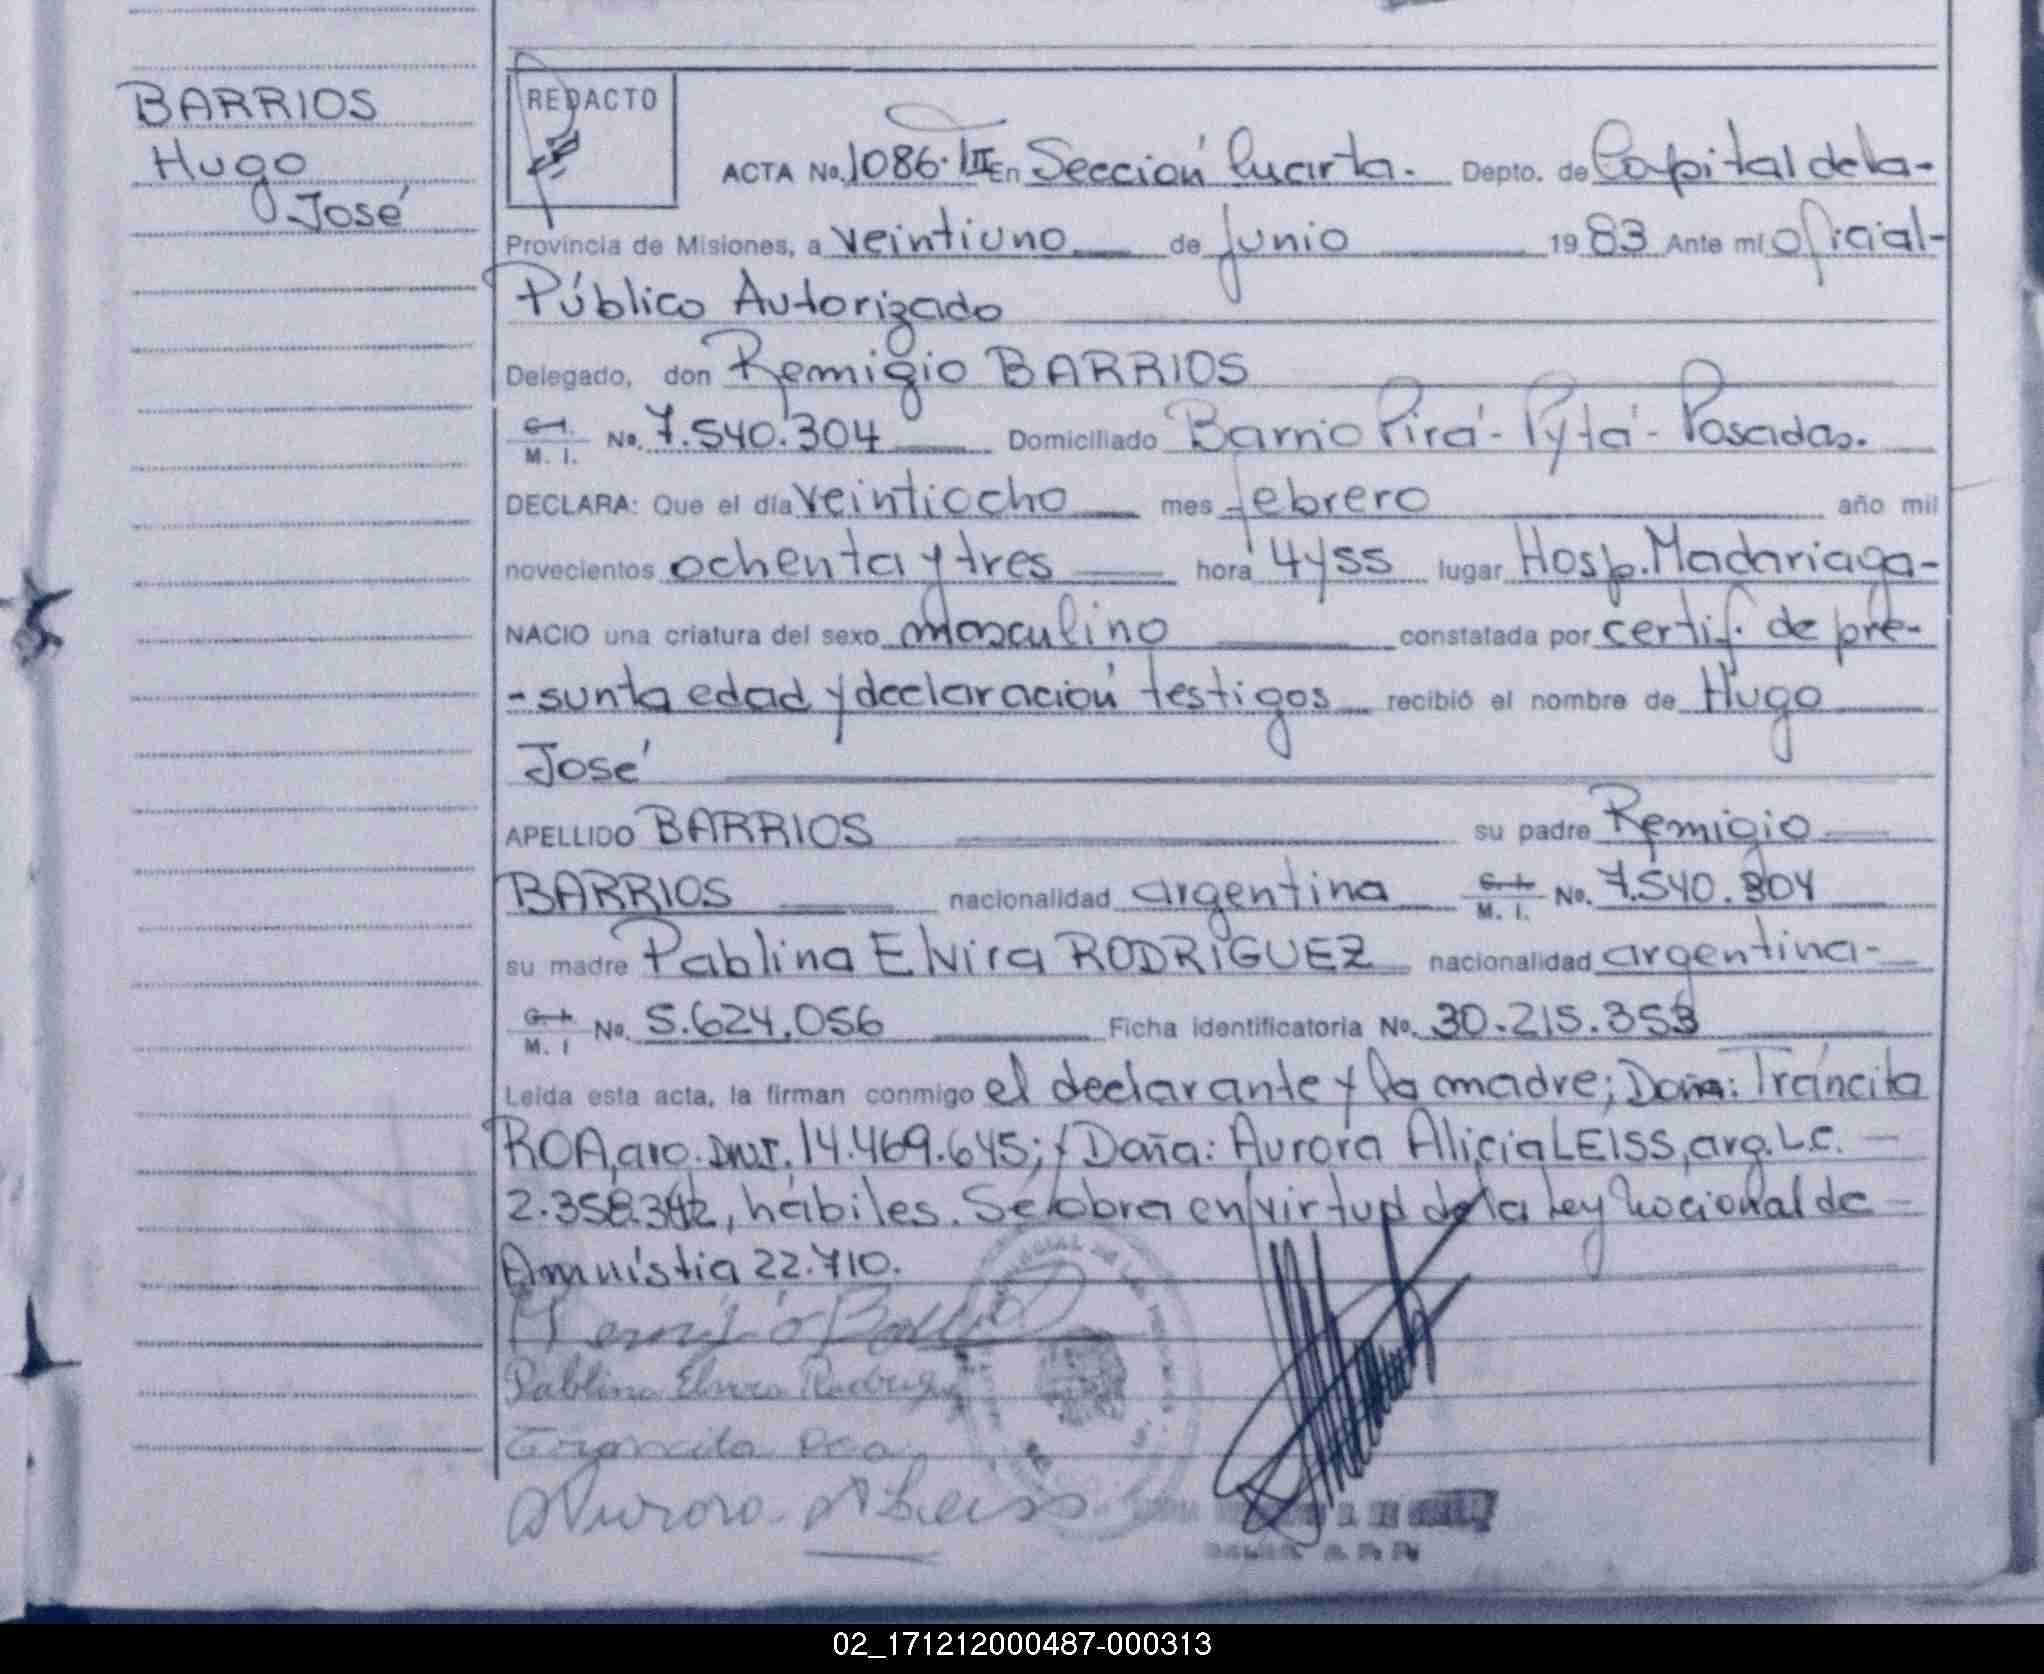 BARRIOS
Hugo
José
REDACTO
ACTA No. 1086. III En Sección Cuarta. Depto. de Capital de la-
Provincia de Misiones, a veintiuno de junio 1983 Ante mí oficial-
Público Autorizado
Delegado, don Remigio BARRIOS
C. I. M. I. No. 7.540.304 Domiciliado Barrio Pirá-Pytá-Posadas.
DECLARA: Que el día veintiocho mes febrero año mil
novecientos ochenta y tres hora 4y55 lugar Hosp. Madariaga-
NACIO una criatura del sexo masculino constatada por certif. de pre-
-sunta edad y declaración testigos recibió el nombre de Hugo
José
APELLIDO BARRIOS su padre Remigio
BARRIOS nacionalidad argentina C. I. M. I. No. 7.540.304
su madre Pablina Elvira RODRIGUEZ nacionalidad argentina-
C. I. M. I No. 5.624.056 Ficha identificatoria No. 30.215.353
Leída esta acta, la firman conmigo el declarante y la madre; Doña: Tráncita
ROA, arg. DNI. 14.469.645; y Doña: Aurora Alicia LEISS, arg. L.C.
2.358.342, hábiles. Se labra en virtud de la ley Nacional de
Amnistia 22.710.
Remigio Barrios
Pablina Elvira Rodriguez
Trancita Roa
Aurora A Leiss
02_171212000487-000313